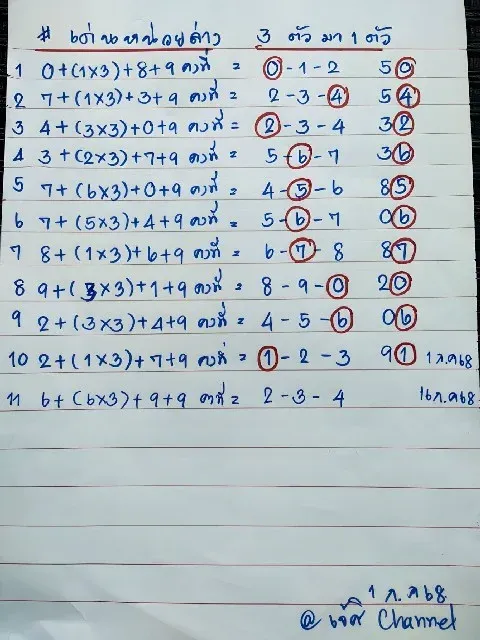 # เด่นหน่วยล่าง 3 ตัว มา 1 ตัว
1 0+(1x3)+8+9 คงที่ = 0-1-2 50
2 7+(1x3)+3+9 คงที่ = 2-3-4 54
3 4+(3x3)+0+9 คงที่ = 2-3-4 32
4 3+(2x3)+7+9 คงที่ = 5-6-7 36
5 7+(6x3)+0+9 คงที่ = 4-5-6 85
6 7+(5x3)+4+9 คงที่ = 5-6-7 06
7 8+(1x3)+6+9 คงที่ = 6-7-8 87
8 9+(3x3)+1+9 คงที่ = 8-9-0 20
9 2+(3x3)+4+9 คงที่ = 4-5-6 06
10 2+(1x3)+7+9 คงที่ = 1-2-3 91 1 ก.ค 68
11 6+(6x3)+9+9 คงที่ = 2-3-4 16 ก.ค 68
1 ก.ค 68
@ Channel